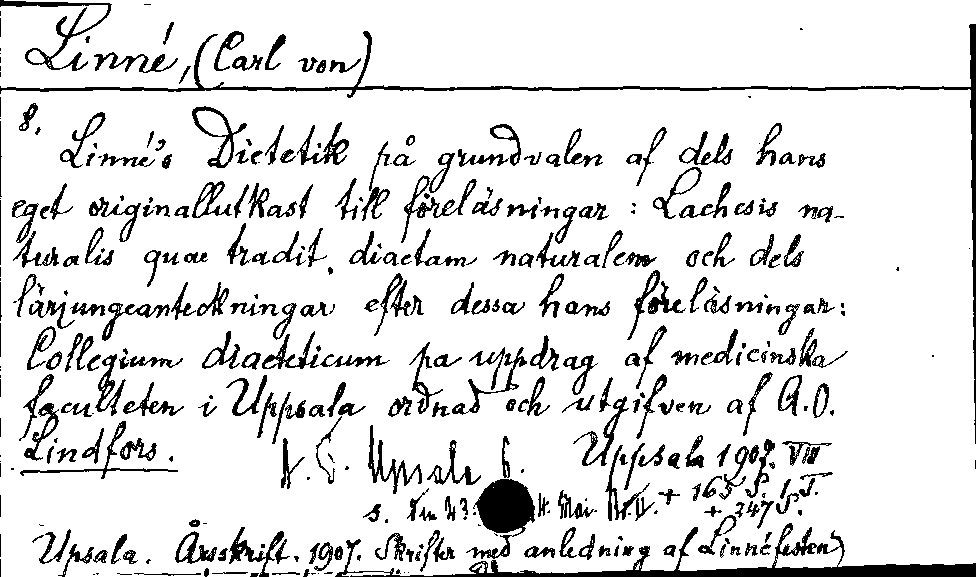 Linné, (Carl von)
8.
Linné's Dietetik på grundvalen af dels hans
eget originallutkast till föreläsningar: Lachesis na-
turalis quae tradit diaetam naturalem och dels
lärjungeanteckningar efter dessa hans föreläsningar:
Collegium diaeteticum pa uppdrag af medicinska
faculteten i Uppsala ordnad och utgifven af A.O.
Lindfors. Upsala 6. Uppsala 1907. VIII
+ 165 S. 1 T.
s. + 347 S.
Upsala. Årsskrift. 1907. Skrifter med anledning af Linnéfesten)